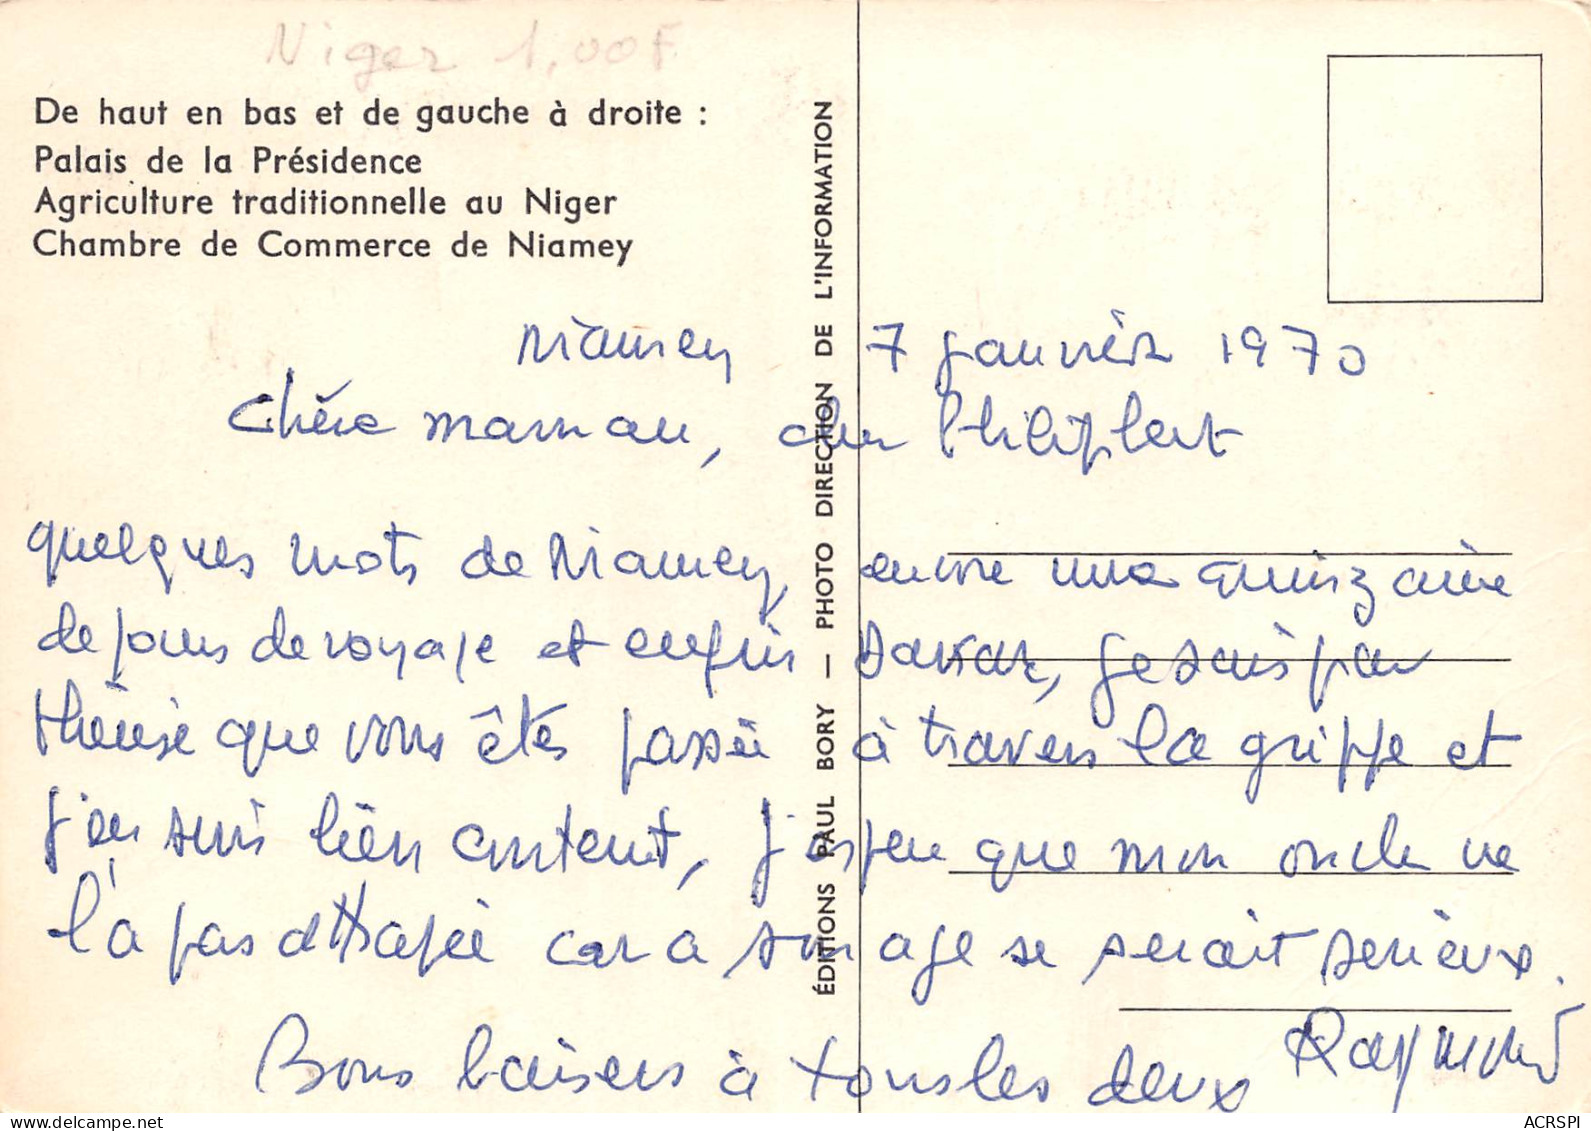 Niger 1,00F
De haut en bas et de gauche à droite :
Palais de la Présidence
Agriculture traditionnelle au Niger
Chambre de Commerce de Niamey
ÉDITIONS PAUL BORY — PHOTO DIRECTION DE L'INFORMATION
Niamey 7 janvier 1970
Chère maman, cher Philibert
quelques mots de Niamey, encore une quinzaine
de jours de voyage et enfin Dakar, je sais par
thérèse que vous êtes passée à travers la grippe et
j'en suis bien content, j'espère que mon oncle ne
l'a pas attrapée car a son age se serait serieux.
Bons baisers à tous les deux Raymond
ACRSPI